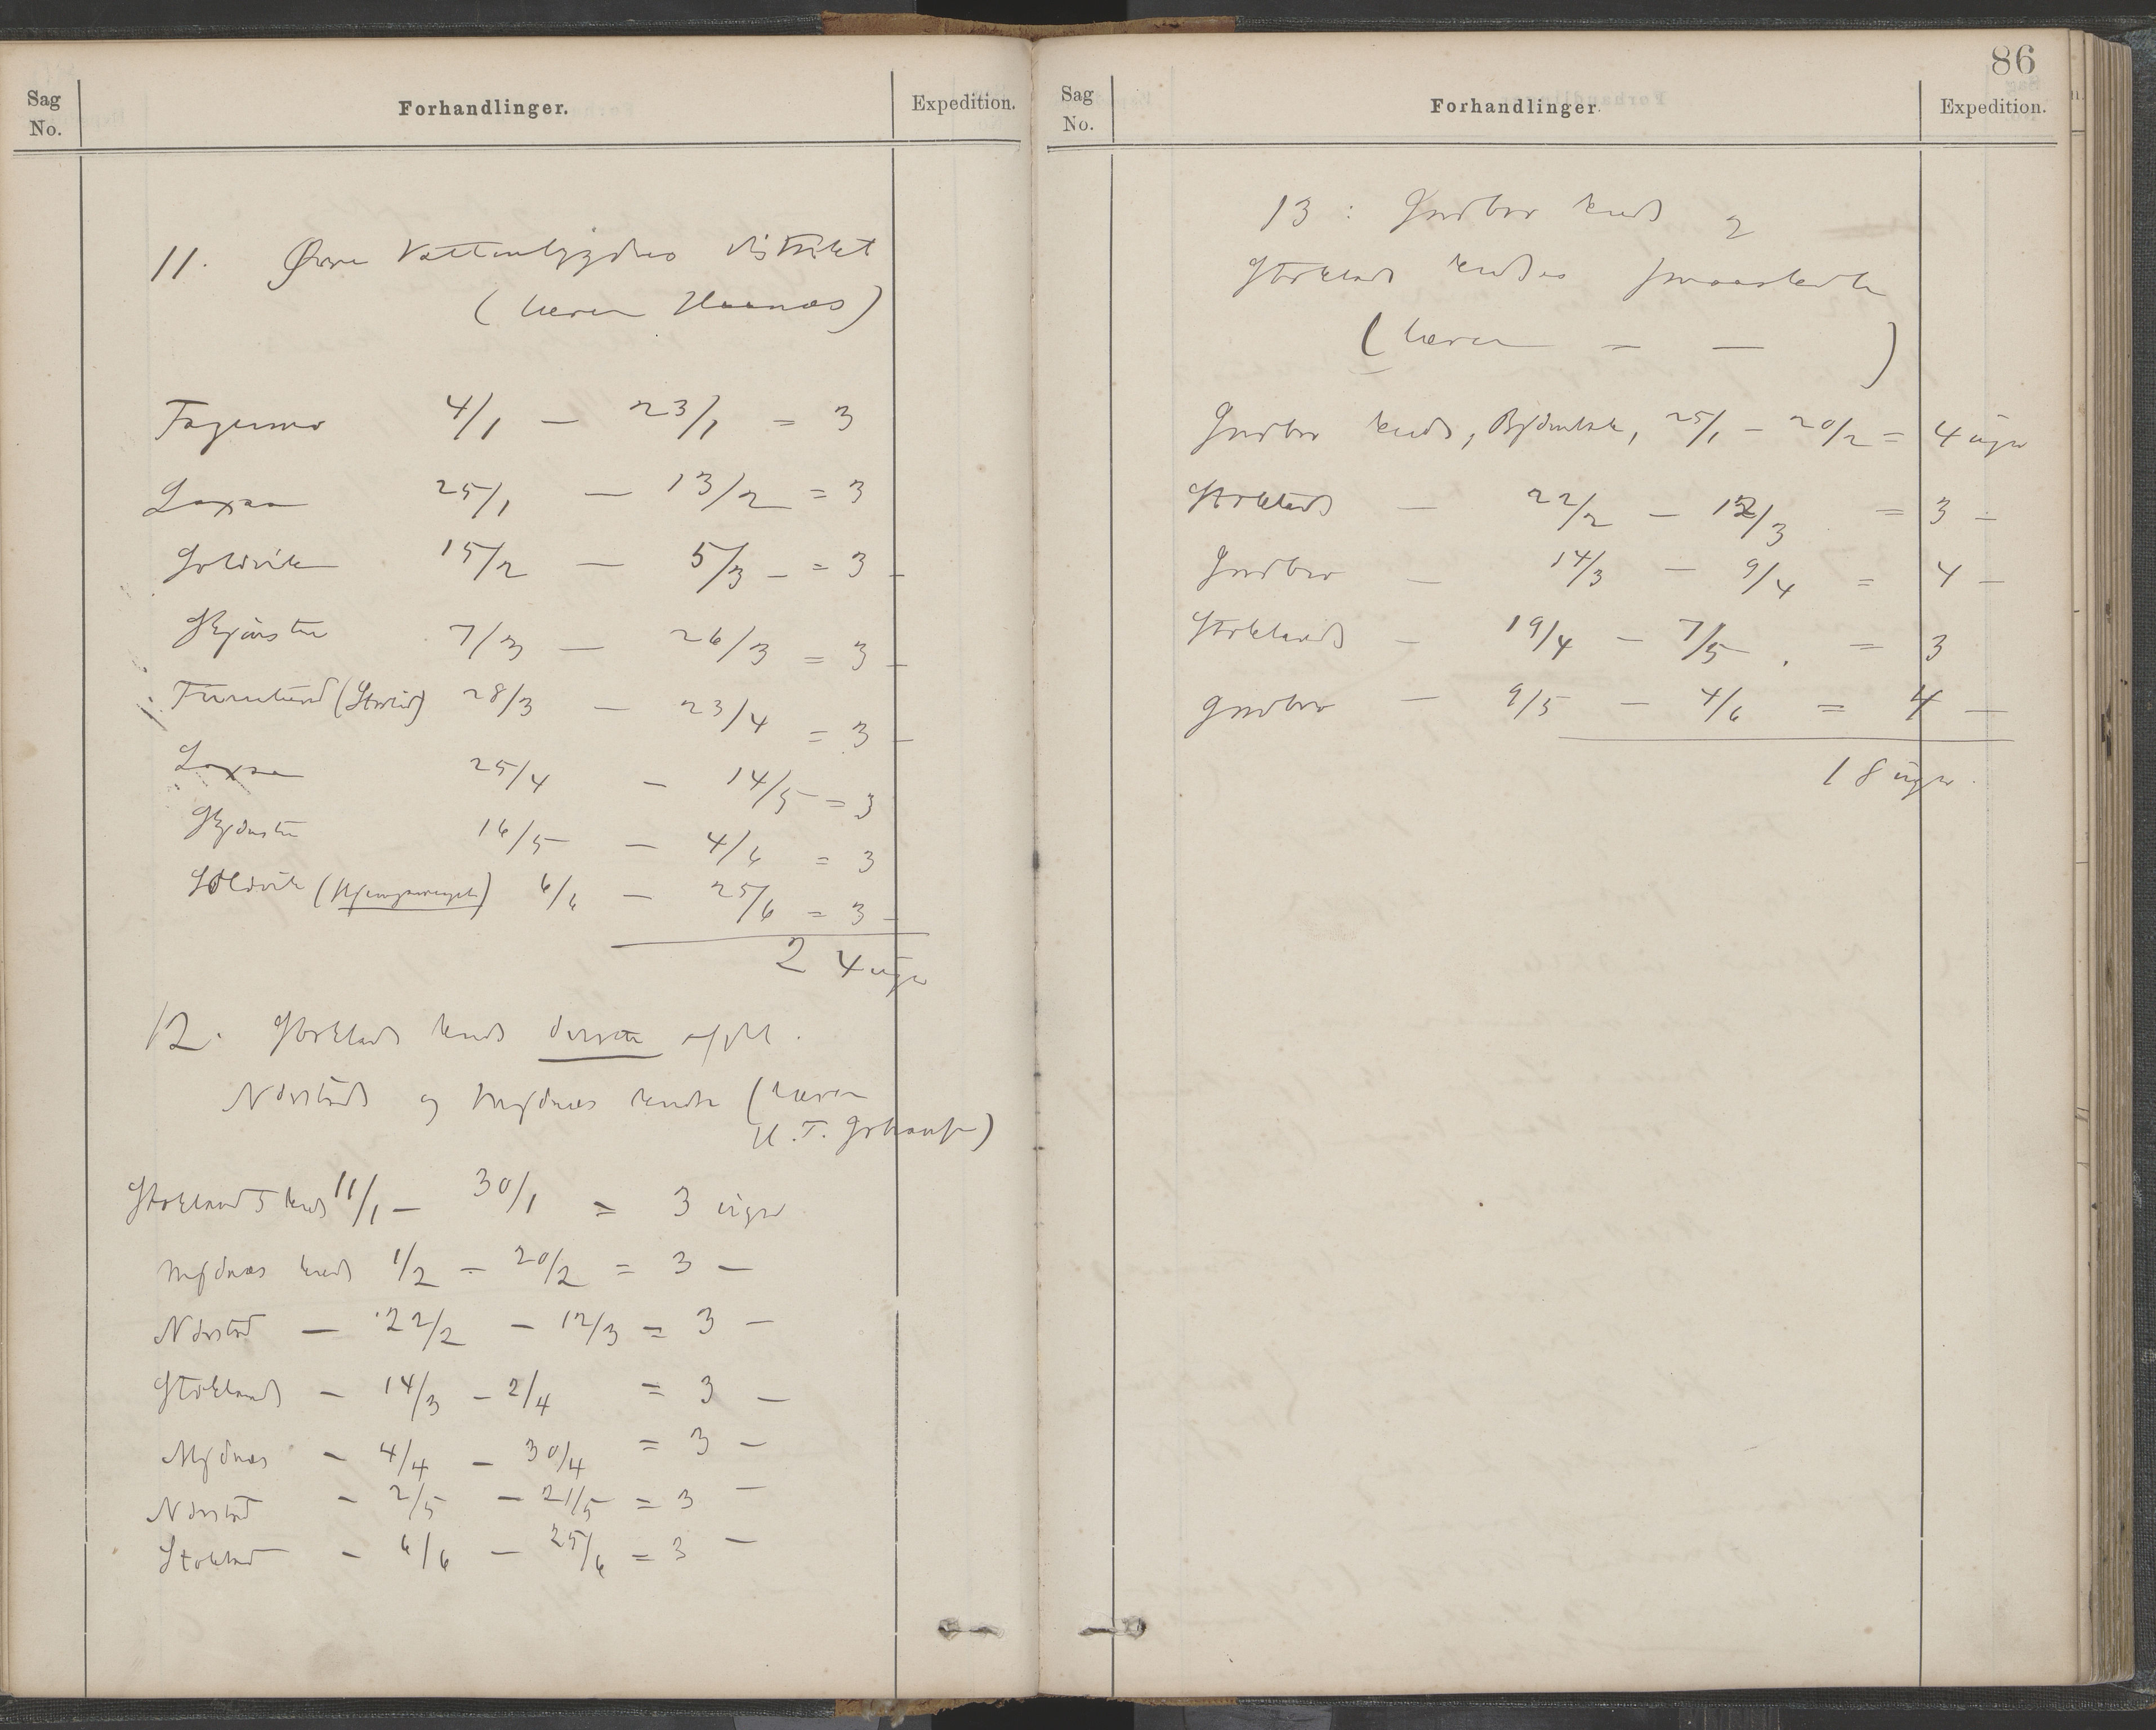 Sag
No.
Forhandlinger.
Expedition.
11. Øvre Vattenbygdens distrikt
(lærer Haanæs)
Fagermo 4/1 — 23/1 = 3
Laxaa 25/1 — 13/2 = 3
Soldvik 15/2 — 5/3 - = 3 -
Skjørstu 7/3 — 26/3 = 3 -
Furulund (Storlid) 28/3 — 23/4 = 3 -
Laxaa 25/4 — 14/5 = 3
Skjørstu 16/5 — 4/6 = 3
Soldvik 6/6 — 25/6 = 3 -
24 uger
12. Storklands kreds øverste afdel.
Norstads og Mjønæs kredse (lærer
H. T. Johansen)
Stoklands kreds 11/1 — 30/1 = 3 uger
Mjønæs kreds 1/2 - 20/2 = 3 —
Norstad — 22/2 - 12/3 = 3 —
Stoklands - 14/3 - 2/4 = 3 —
Mjønæs - 4/4 - 30/4 = 3 -
Norstad - 2/5 - 21/5 = 3 —
Stoklad - 6/6 — 25/6 = 3 —
86
Sag
No.
Forhandlinger.
Expedition.
13: kreds og
Stoklands kredses smaaskole
(lærer — — )
kreds, 25/1 - 20/2 = 4 uger
Stoklands — 22/2 - 12/3 = 3 -
14/3 - 9/4 = 4 -
Stoklands - 19/4 - 7/5 . = 3
— 9/5 - 4/6 = 4 —
18 uger.